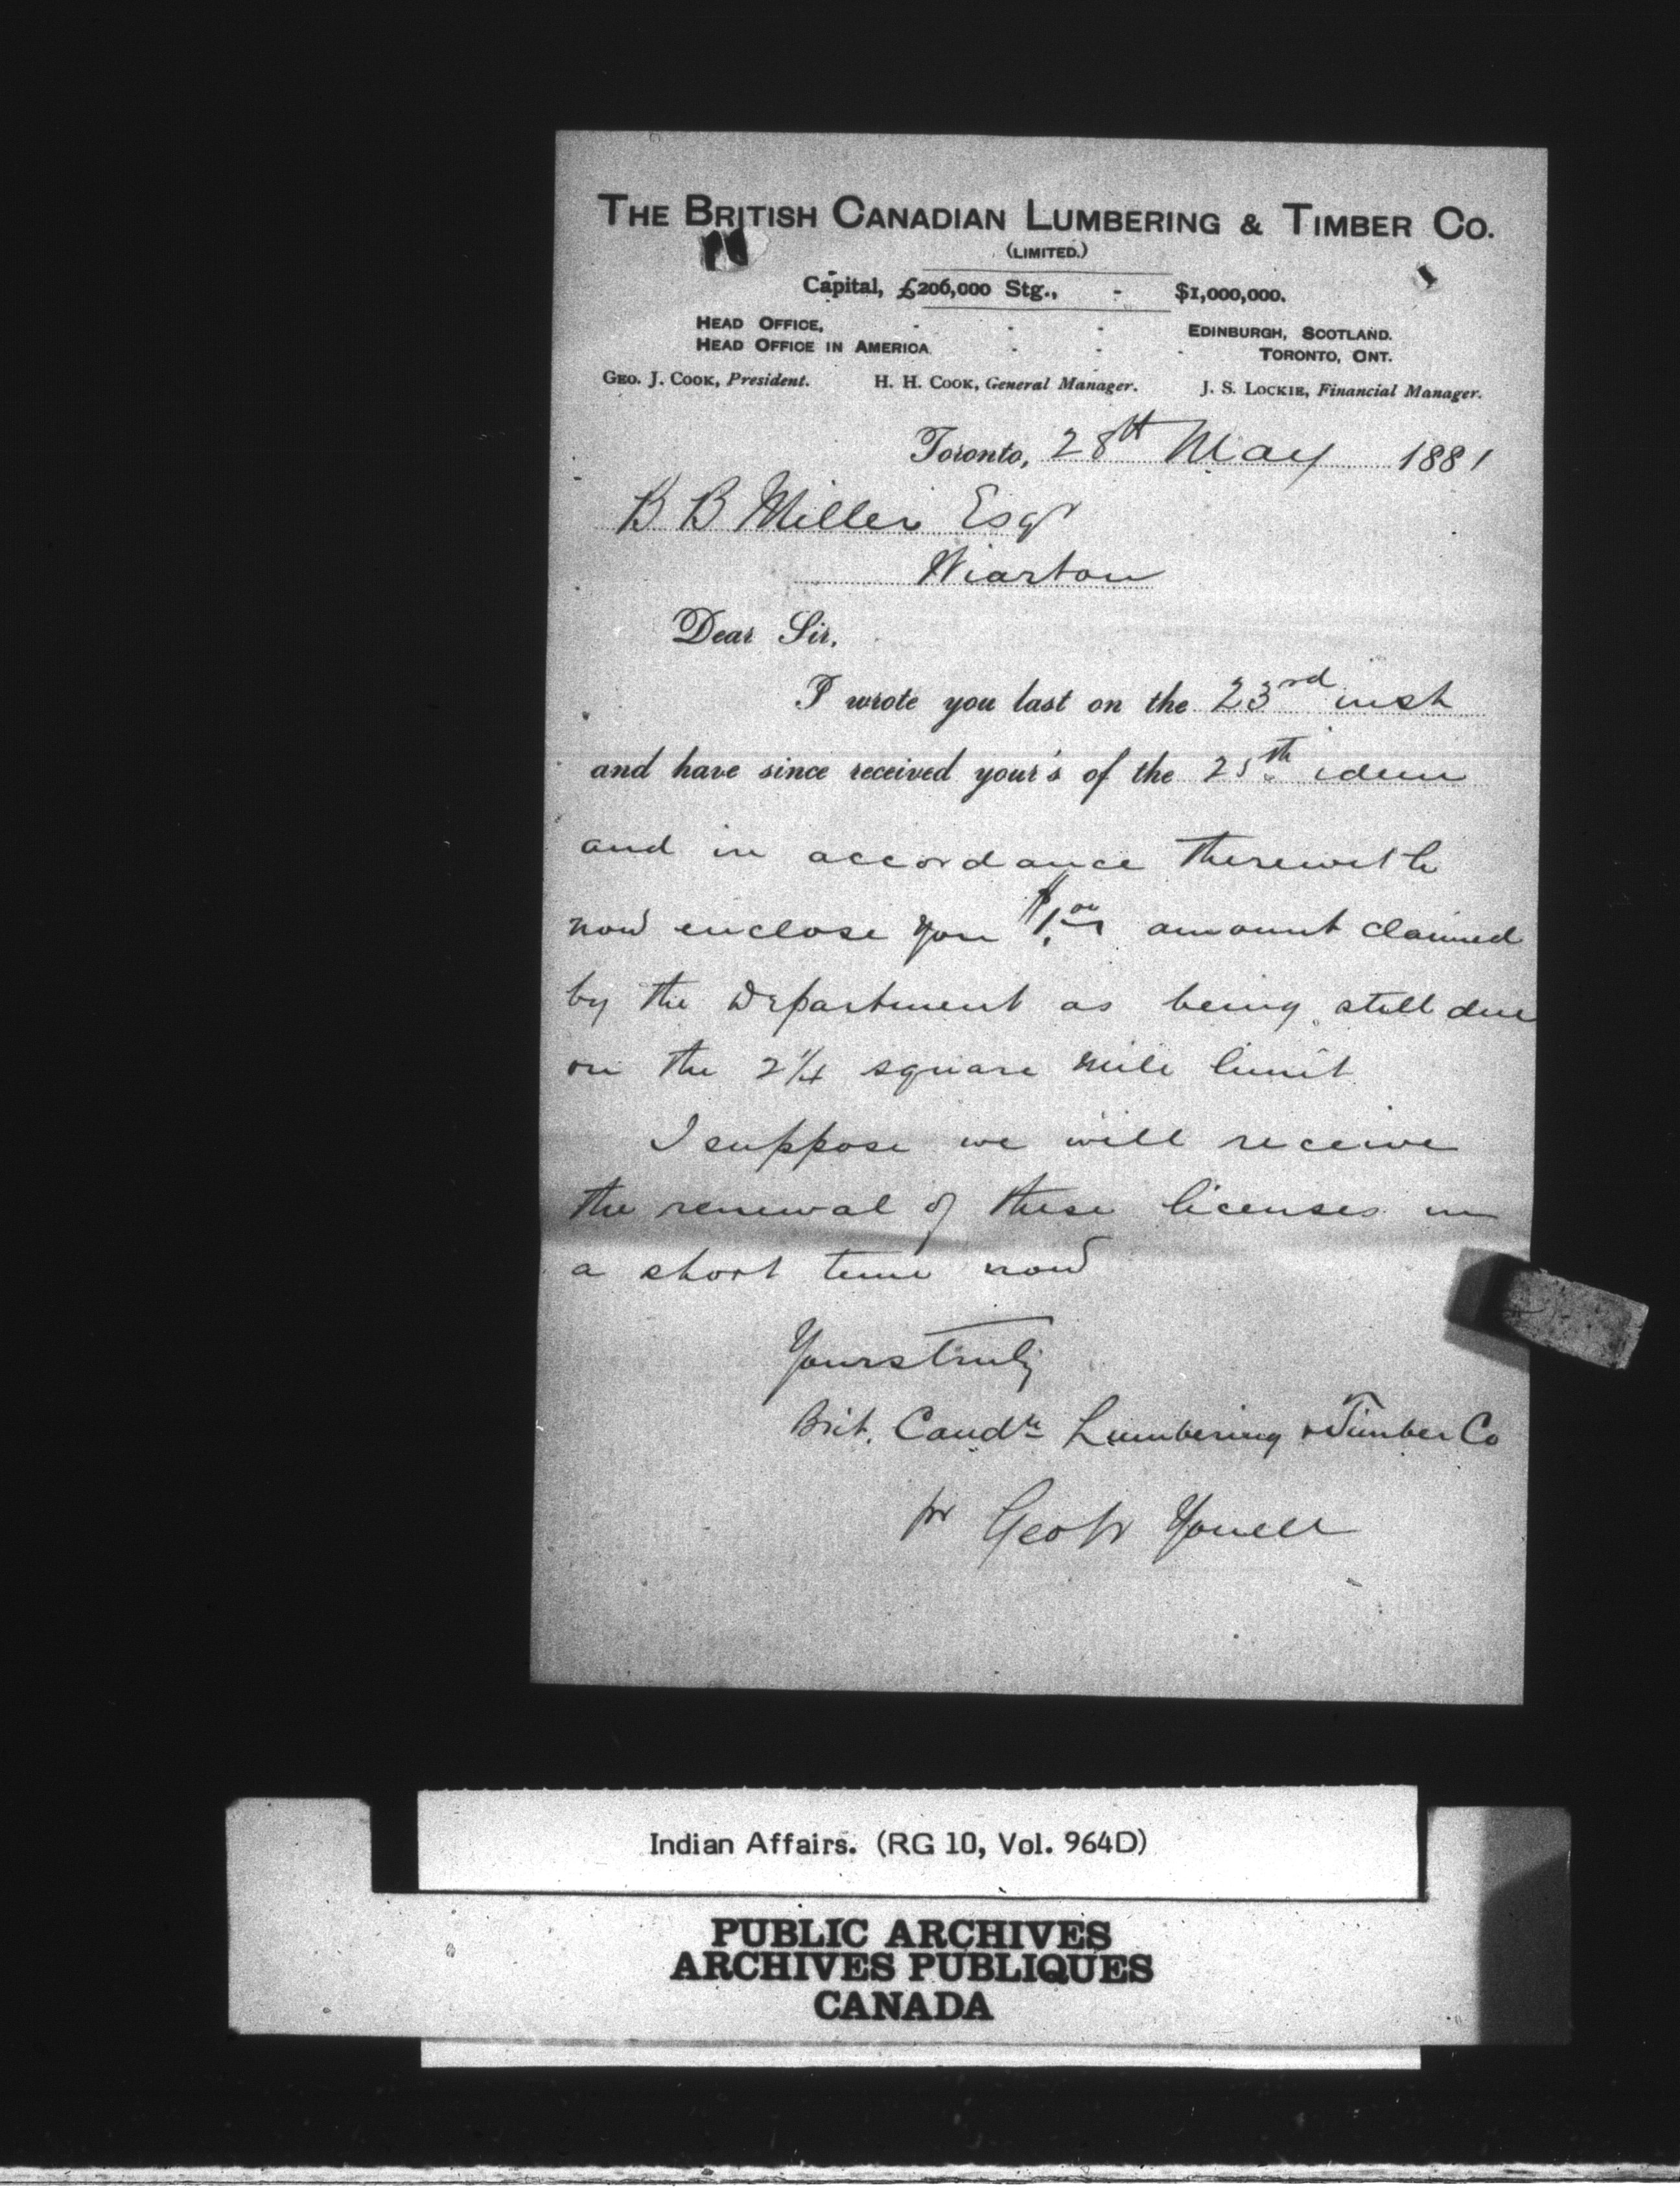 THE BRITISH CANADIAN LUMBERING & TIMBER CO.
(LIMITED.)
Capital, £206,000 Stg., - $1,000,000.
HEAD OFFICE, - - - EDINBURGH, SCOTLAND.
HEAD OFFICE IN AMERICA - - - TORONTO, ONT.
GEO. J. COOK, President. H. H. COOK, General Manager. J. S. LOCKIE, Financial Manager.
Toronto, 28th May 1881
B B Miller Esqr
Wiarton
Dear Sir,
I wrote you last on the 23rd inst
and have since received your's of the 25th idem
and in accordance therewith
now enclose you $1.00 amount claimed
by the Department as being still due
on the 2 1/4 square mile limit
I suppose we will receive
the renewal of these licenses in
a short time now
Yours truly
Brit. Candn Lumbering & Timber Co
pr Geo
Indian Affairs. (RG 10, Vol. 964D)
PUBLIC ARCHIVES
ARCHIVES PUBLIQUES
CANADA